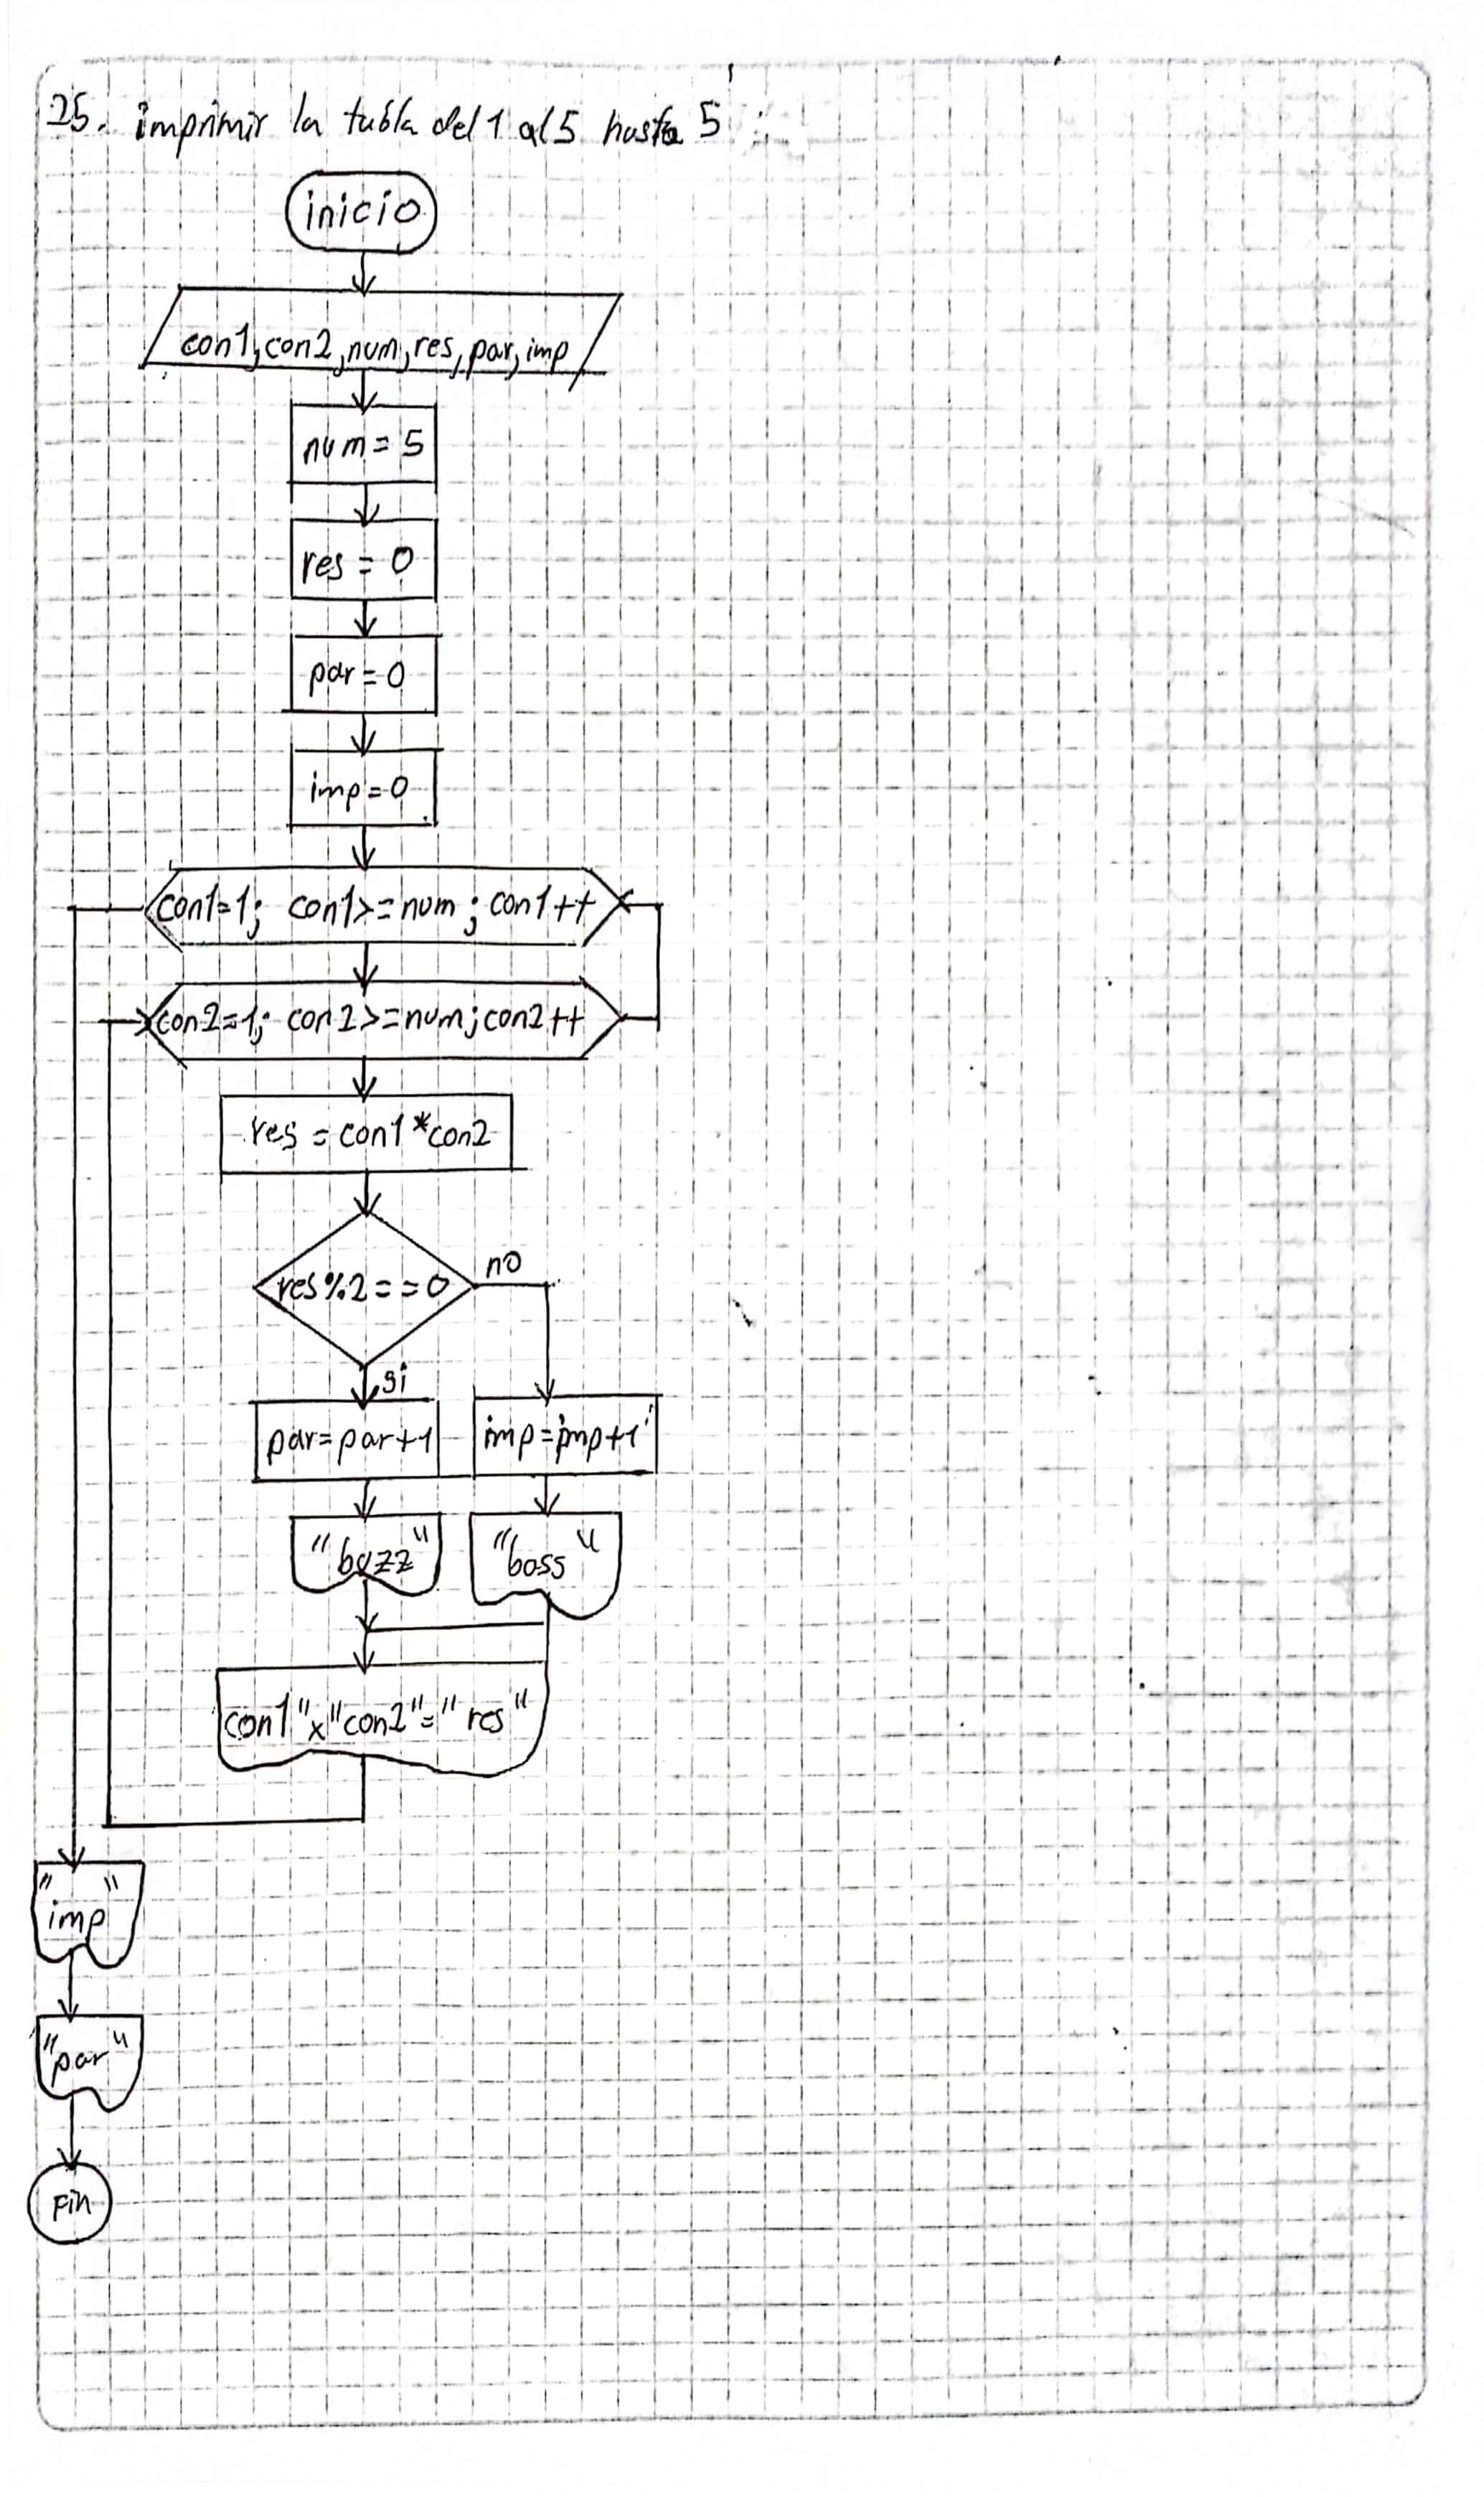 25. imprimir la tabla del 1 al 5 hasta 5
inicio
con1,con2,num,res,par,imp
num = 5
res = 0
par = 0
imp = 0
con1=1; con1>=num; con1++
con2=1; con2>=num; con2++
res = con1*con2
res%2==0
no
si
par=par+1
imp=imp+1
"buzz"
"boss"
con1"x"con2"="res"
"imp"
"par"
Fin